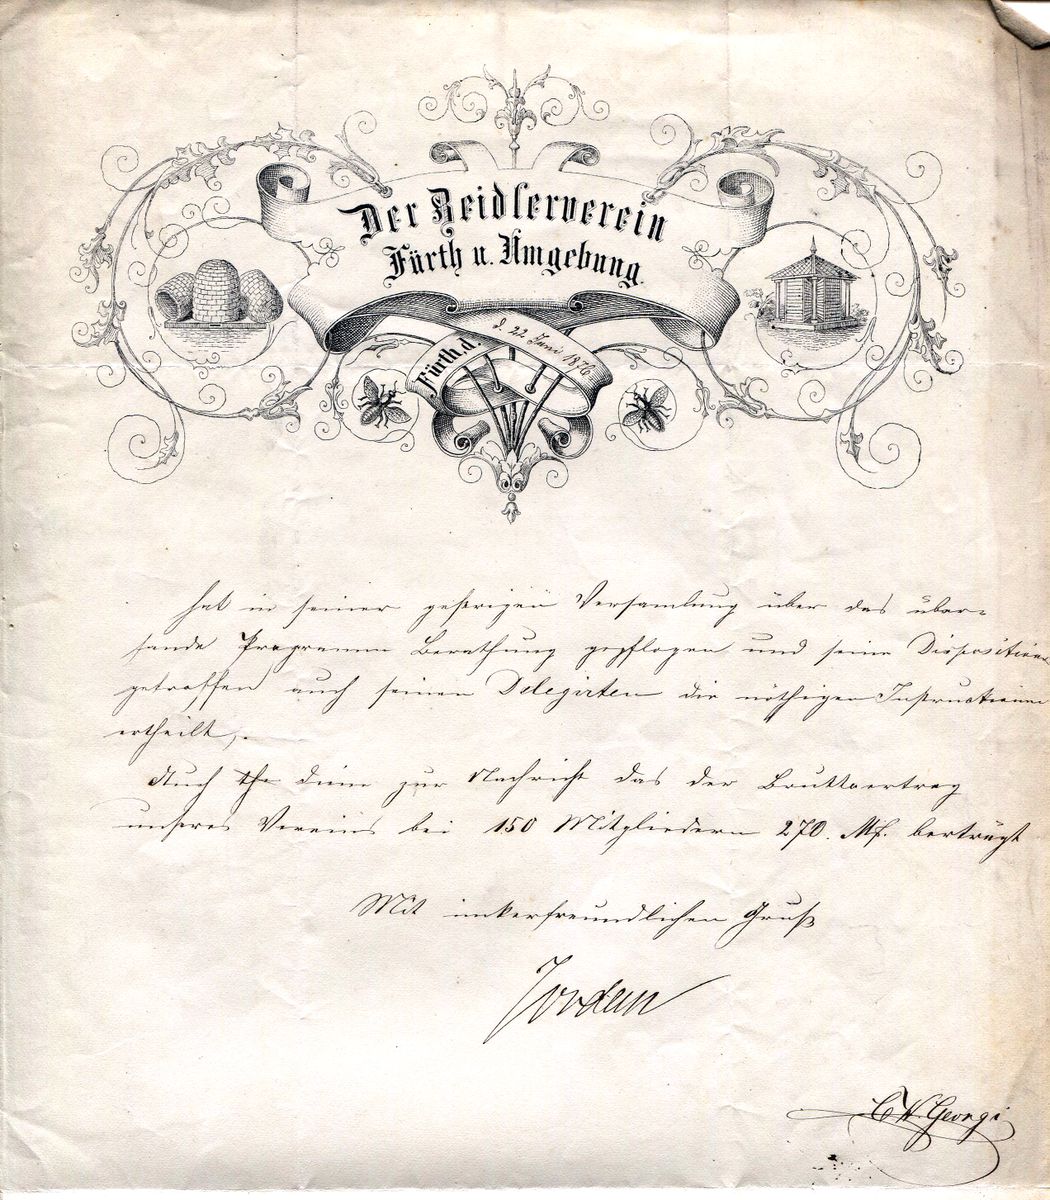 Der Zeidlerverein
Fürth u. Umgebung.
Fürth, d. d. 22 Juni 1876
hat in seiner gestrigen Versamlung über das über-
sande Programm Berathung gepflogen und seine Dispositionen
getroffen auch seinen Delegirten die nöthigen Instructionen
ertheilt,.
Auch diene zur Nachricht das der Bruttoertrag
unseres Vereins bei 150 Mitgliedern 270. Mk. berträgt
Mit imkerfreundlichen Gruß
Jordan
C W. Georgi